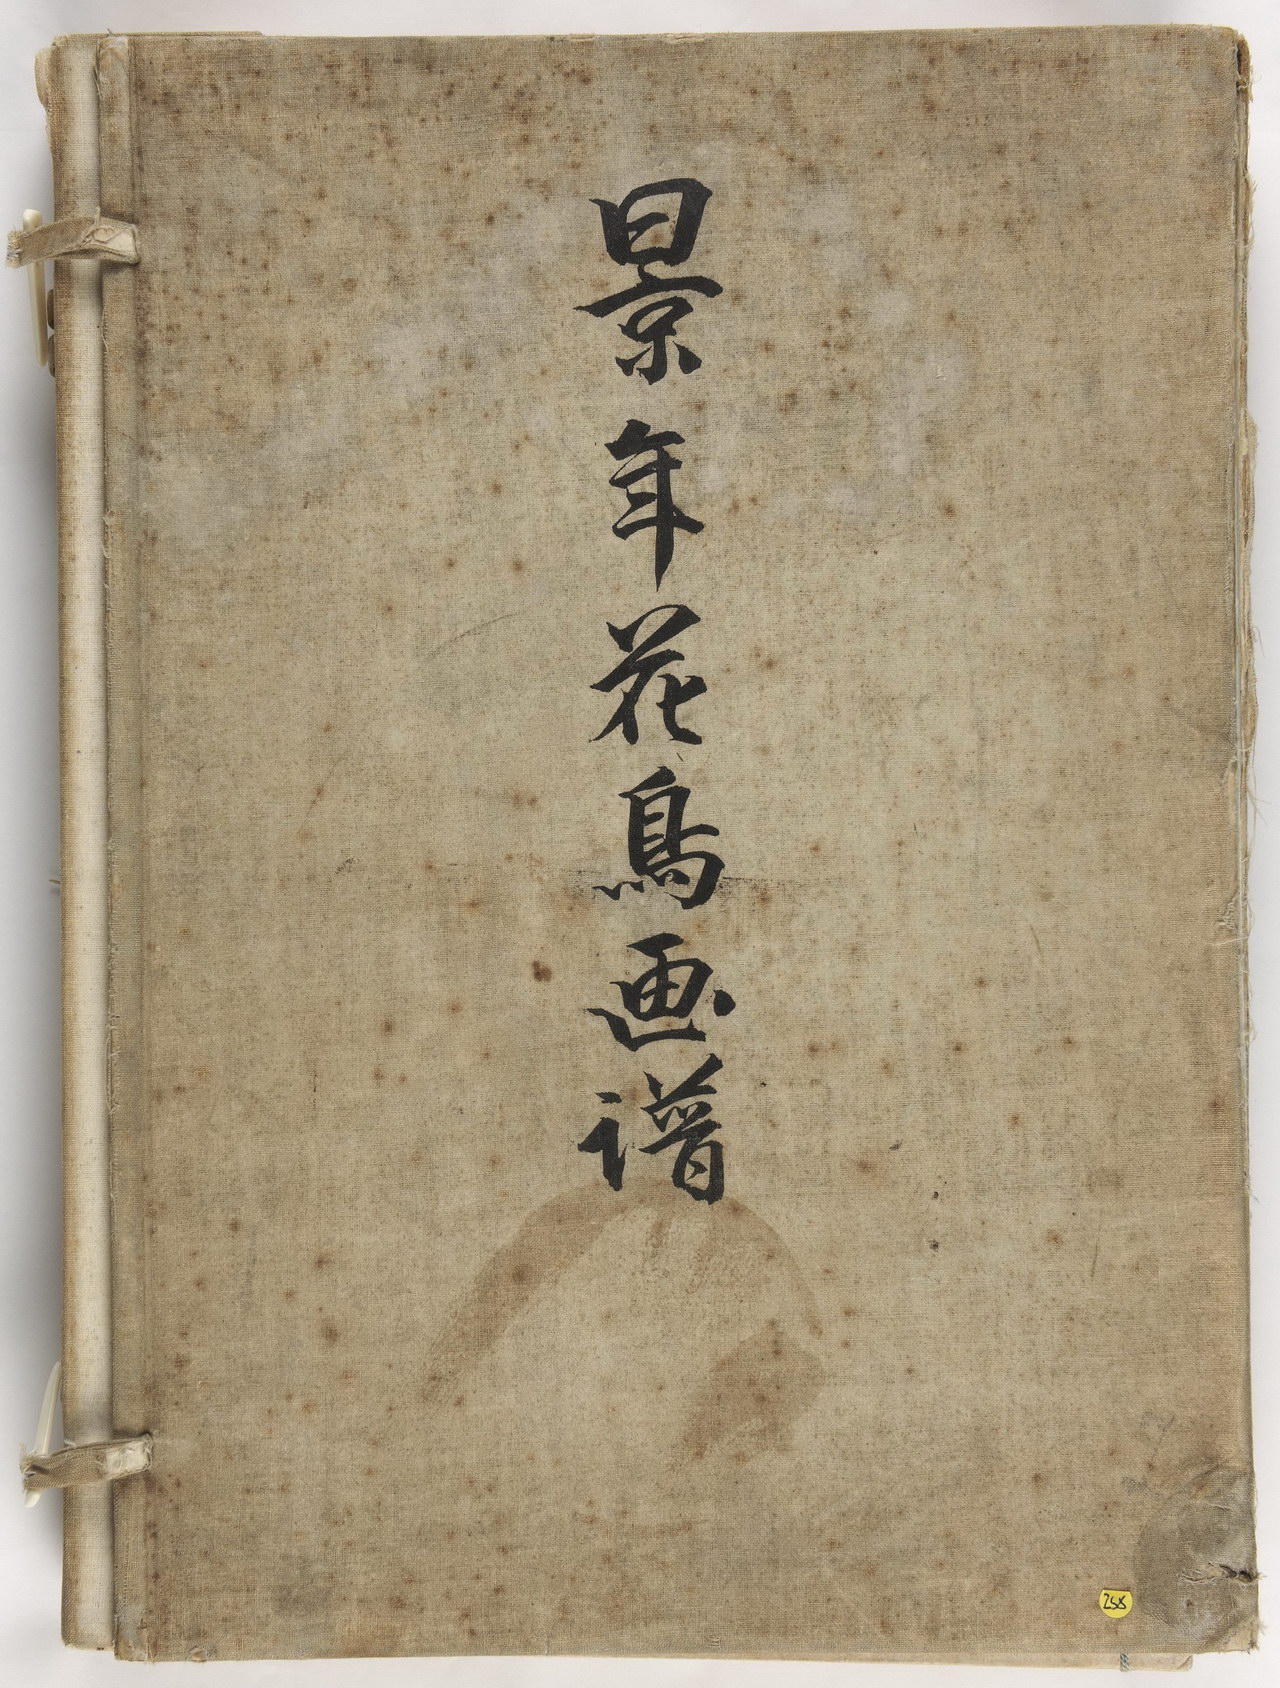 景年花鳥画譜
258